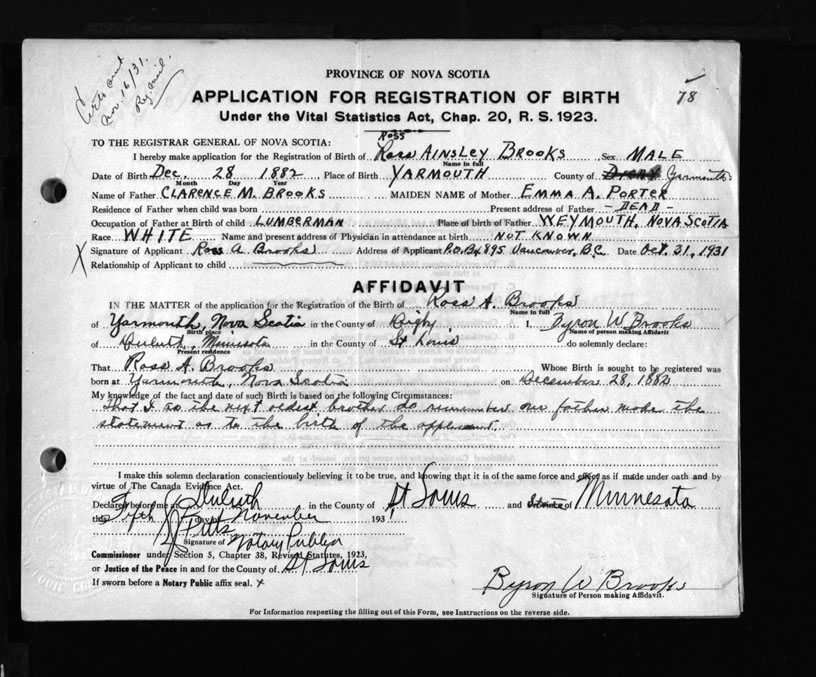 Certs sent
Nov. 16/31.
Reg. mail.
78
PROVINCE OF NOVA SCOTIA
APPLICATION FOR REGISTRATION OF BIRTH
Under the Vital Statistics Act, Chap. 20, R. S. 1923.
ROSS
TO THE REGISTRAR GENERAL OF NOVA SCOTIA:
I hereby make application for the Registration of Birth of Ross AINSLEY BROOKS Sex MALE
Name in full
Date of Birth Dec. 28 1882 Place of Birth YARMOUTH County of Yarmouth
Month Day Year
Name of Father CLARENCE M. BROOKS MAIDEN NAME of Mother EMMA A. PORTER
Residence of Father when child was born Present address of Father - DEAD -
Occupation of Father at Birth of child LUMBERMAN Place of birth of Father WEYMOUTH, NOVA SCOTIA
Race WHITE Name and present address of Physician in attendance at birth NOT KNOWN
X Signature of Applicant Ross A Brooks Address of Applicant P.O. Bx 895 Vancouver, B.C. Date Oct. 31, 1931
Relationship of Applicant to child
AFFIDAVIT
IN THE MATTER of the application for the Registration of the Birth of Ross A. Brooks
Name in full
of Yarmouth, Nova Scotia in the County of Digby I, Byron W Brooks
Birth place Name of person making Affidavit
of Duluth, Minnesota in the County of St Louis do solemnly declare:
Present residence
That Ross A. Brooks Whose Birth is sought to be registered was
born at Yarmouth, Nova Scotia on December 28, 1882
My knowledge of the fact and date of such Birth is based on the following Circumstances:
That I as the next oldest brother do remember our father made the
statement as to the birth of the applicant.
I make this solemn declaration conscientiously believing it to be true, and knowing that it is of the same force and effect as if made under oath and by
virtue of The Canada Evidence Act.
Declared before me at Duluth in the County of St Louis and State of Minnesota
this Fifth day of November 1931
Pitts
Signature of Notary Public
Commissioner under Section 5, Chapter 38, Revised Statutes, 1923,
or Justice of the Peace in and for the County of St Louis
If sworn before a Notary Public affix seal. x
Byron W Brooks
Signature of Person making Affidavit.
For Information respecting the filling out of this Form, see Instructions on the reverse side.